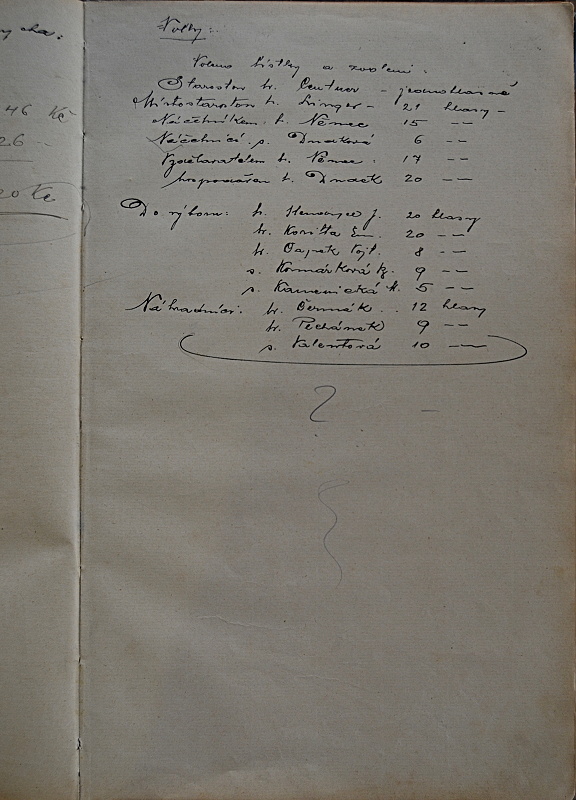 y cha:
46 Kč
26 -
20 Kč
Volby:
Voleno lístky a zvoleni:
Starostou br. Centner - jednohlasně
Místostarostou b. Linger - 21 hlasy -
Náčelníkem b. Němec 15 -"-
Náčelnicí s. Dudková 6 -"-
Vzdělavatelem b. Němec. 17 -"-
hospodářem b. Dudek 20 -"-
Do výboru: br. J. 20 hlasy
br. Korita Em. 20 -"-
br. Čapek Vojt. 8 -"-
s. Komárková 9 -"-
s. Kamenická 5 -"-
Náhradníci: br. Čermák .. 12 hlasy
br. Pechánek 9 -"-
s. Valentová 10 -"-